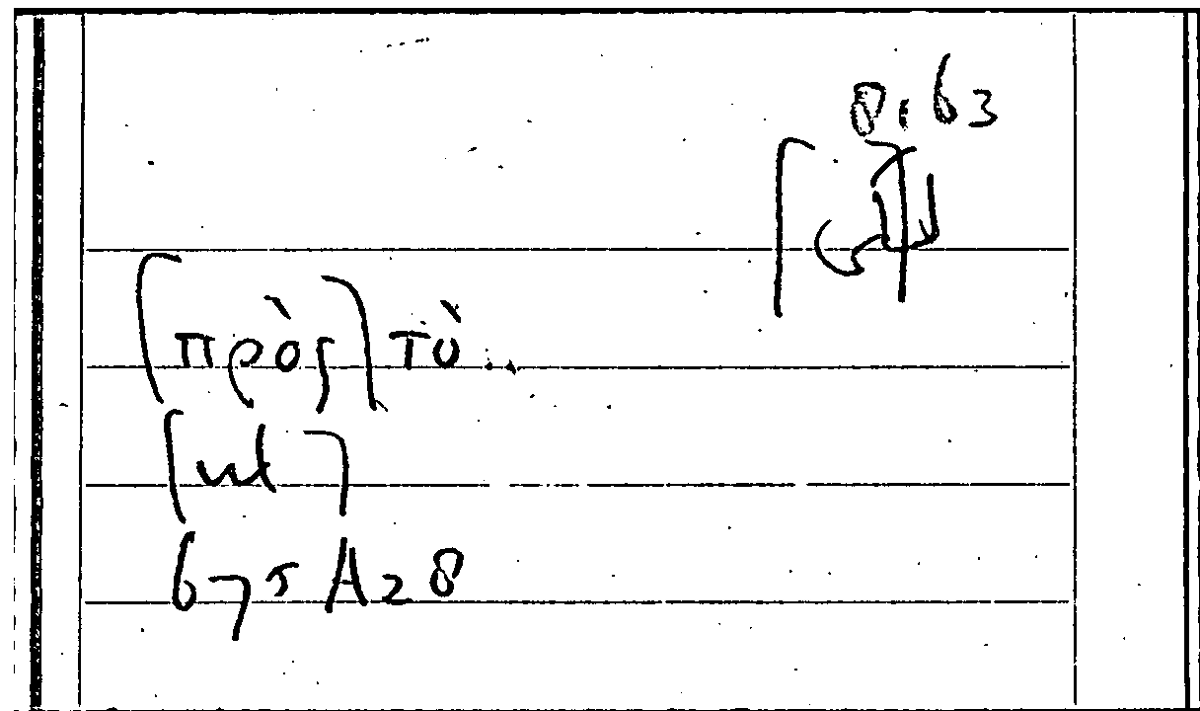 8.63
[πρὸς] τὸ..
[ut]
675A28